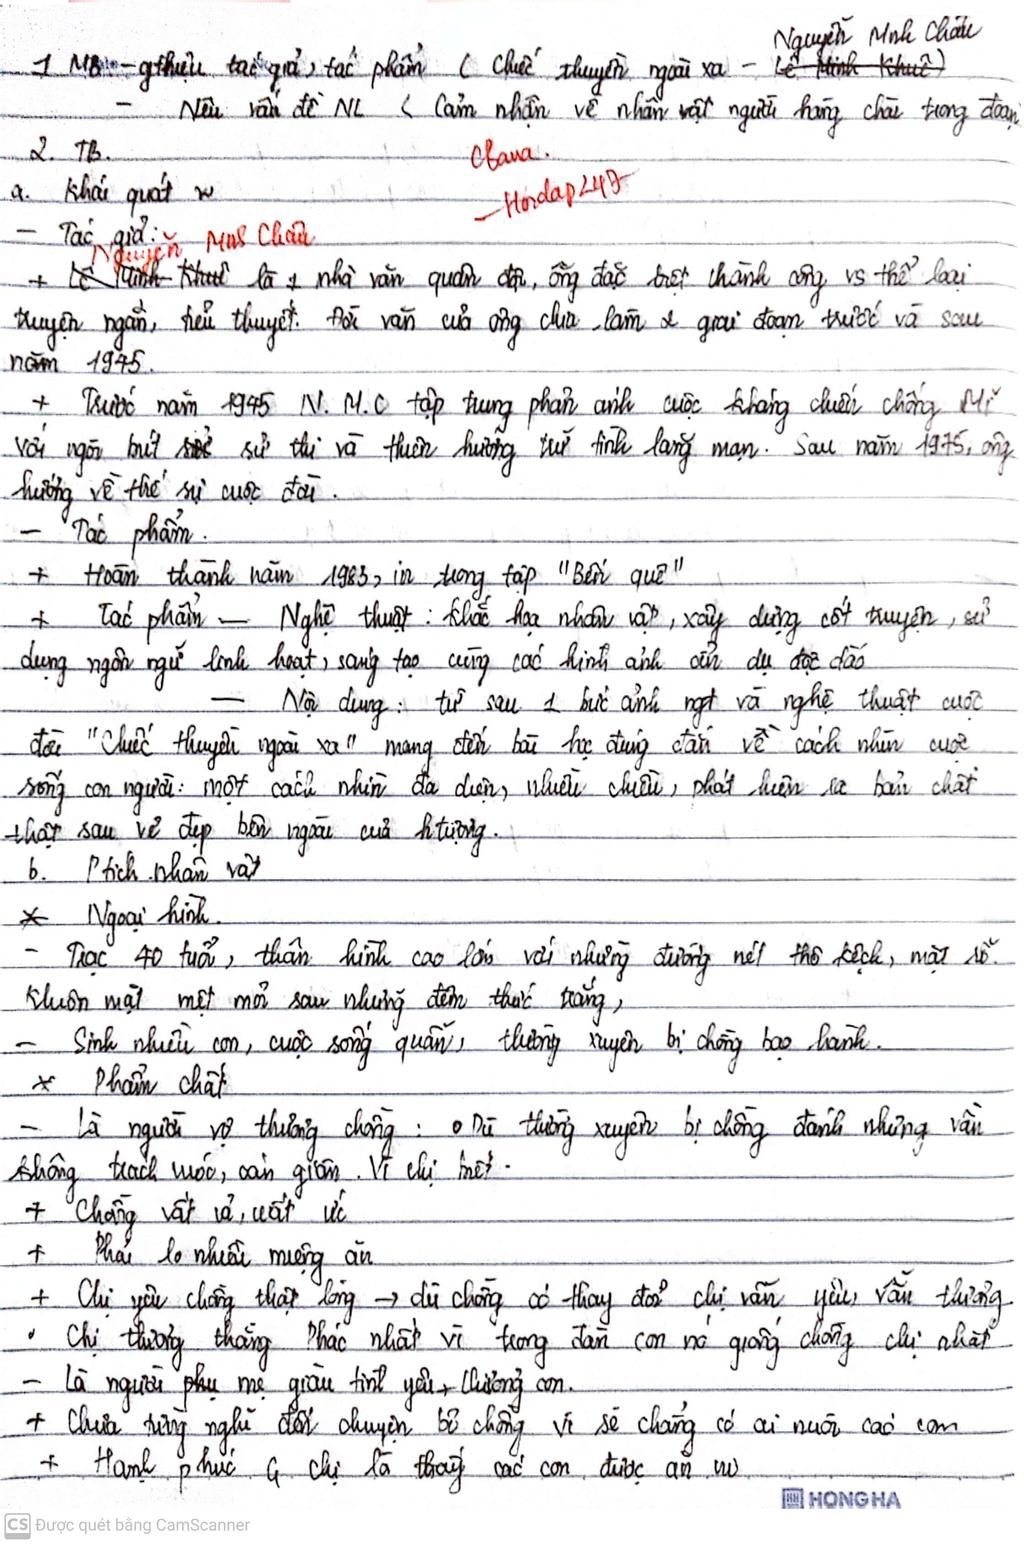 Nguyễn Mnh Châu
1 MB: - gthiệu tác giả, tác phẩm ( Chiếc thuyền ngoài xa - Lê Minh Khuê)
- Nêu vấn đề NL ( Cảm nhận về nhân vật người hàng chài trong đoạn
2. TB.
Clava.
a. Khái quát
- Hordap247
- Tác giả:
Nguyễn Mnh Châu
+ Lê Minh Khuê là 1 nhà văn quân đội, ông đặc biệt thành công vs thể loại
truyện ngắn, tiểu thuyết. Đời văn của ông chia làm 2 giai đoạn trước và sau
năm 1945.
+ Trước năm 1945 N.M.C tập trung phản ánh cuộc kháng chiến chống Mĩ
với ngòi bút sử thi và thiên hướng trữ tình lãng mạn. Sau năm 1975, ông
hướng về thế sự cuộc đời.
- Tác phẩm.
+ Hoàn thành năm 1983, in trong tập "Bến quê"
+ Tác phẩm - Nghệ thuật: khắc họa nhân vật, xây dựng cốt truyện, sử
dụng ngôn ngữ linh hoạt, sáng tạo cùng các hình ảnh ẩn dụ độc đáo
- Nội dung: từ sau 1 bức ảnh ngt và nghệ thuật cuộc
đời "Chiếc thuyền ngoài xa" mang đến bài học đúng đắn về cách nhìn cuộc
sống con người: một cách nhìn đa diện, nhiều chiều, phát hiện ra bản chất
thật sau vẻ đẹp bên ngoài của htượng.
b. Ptích nhân vật
* Ngoại hình.
- Trạc 40 tuổi, thân hình cao lớn với những đường nét thô kệch, mặt rỗ.
Khuôn mặt mệt mỏi sau những đêm thức trắng,
- Sinh nhiều con, cuộc sống quẫn, thường xuyên bị chồng bạo hành.
* Phẩm chất
- Là người vợ thương chồng: • Dù thường xuyên bị chồng đánh nhưng vẫn
không trách móc, oán giận. Vì chị biết.
+ Chồng vất vả, uất ức
+ Phải lo nhiều miệng ăn
+ Chị yêu chồng thật lòng → dù chồng có thay đổi chị vẫn yêu, vẫn thương
• Chị thương thằng Phác nhất vì trong đàn con nó giống chồng chị nhất
- Là người phụ mẹ giàu tình yêu, thương con.
+ Chưa từng nghĩ đến chuyện bỏ chồng vì sẽ chẳng có ai nuôi các con
+ Hạnh phúc of chị là thấy các con được ăn no
HONG HA
CS Được quét bằng CamScanner